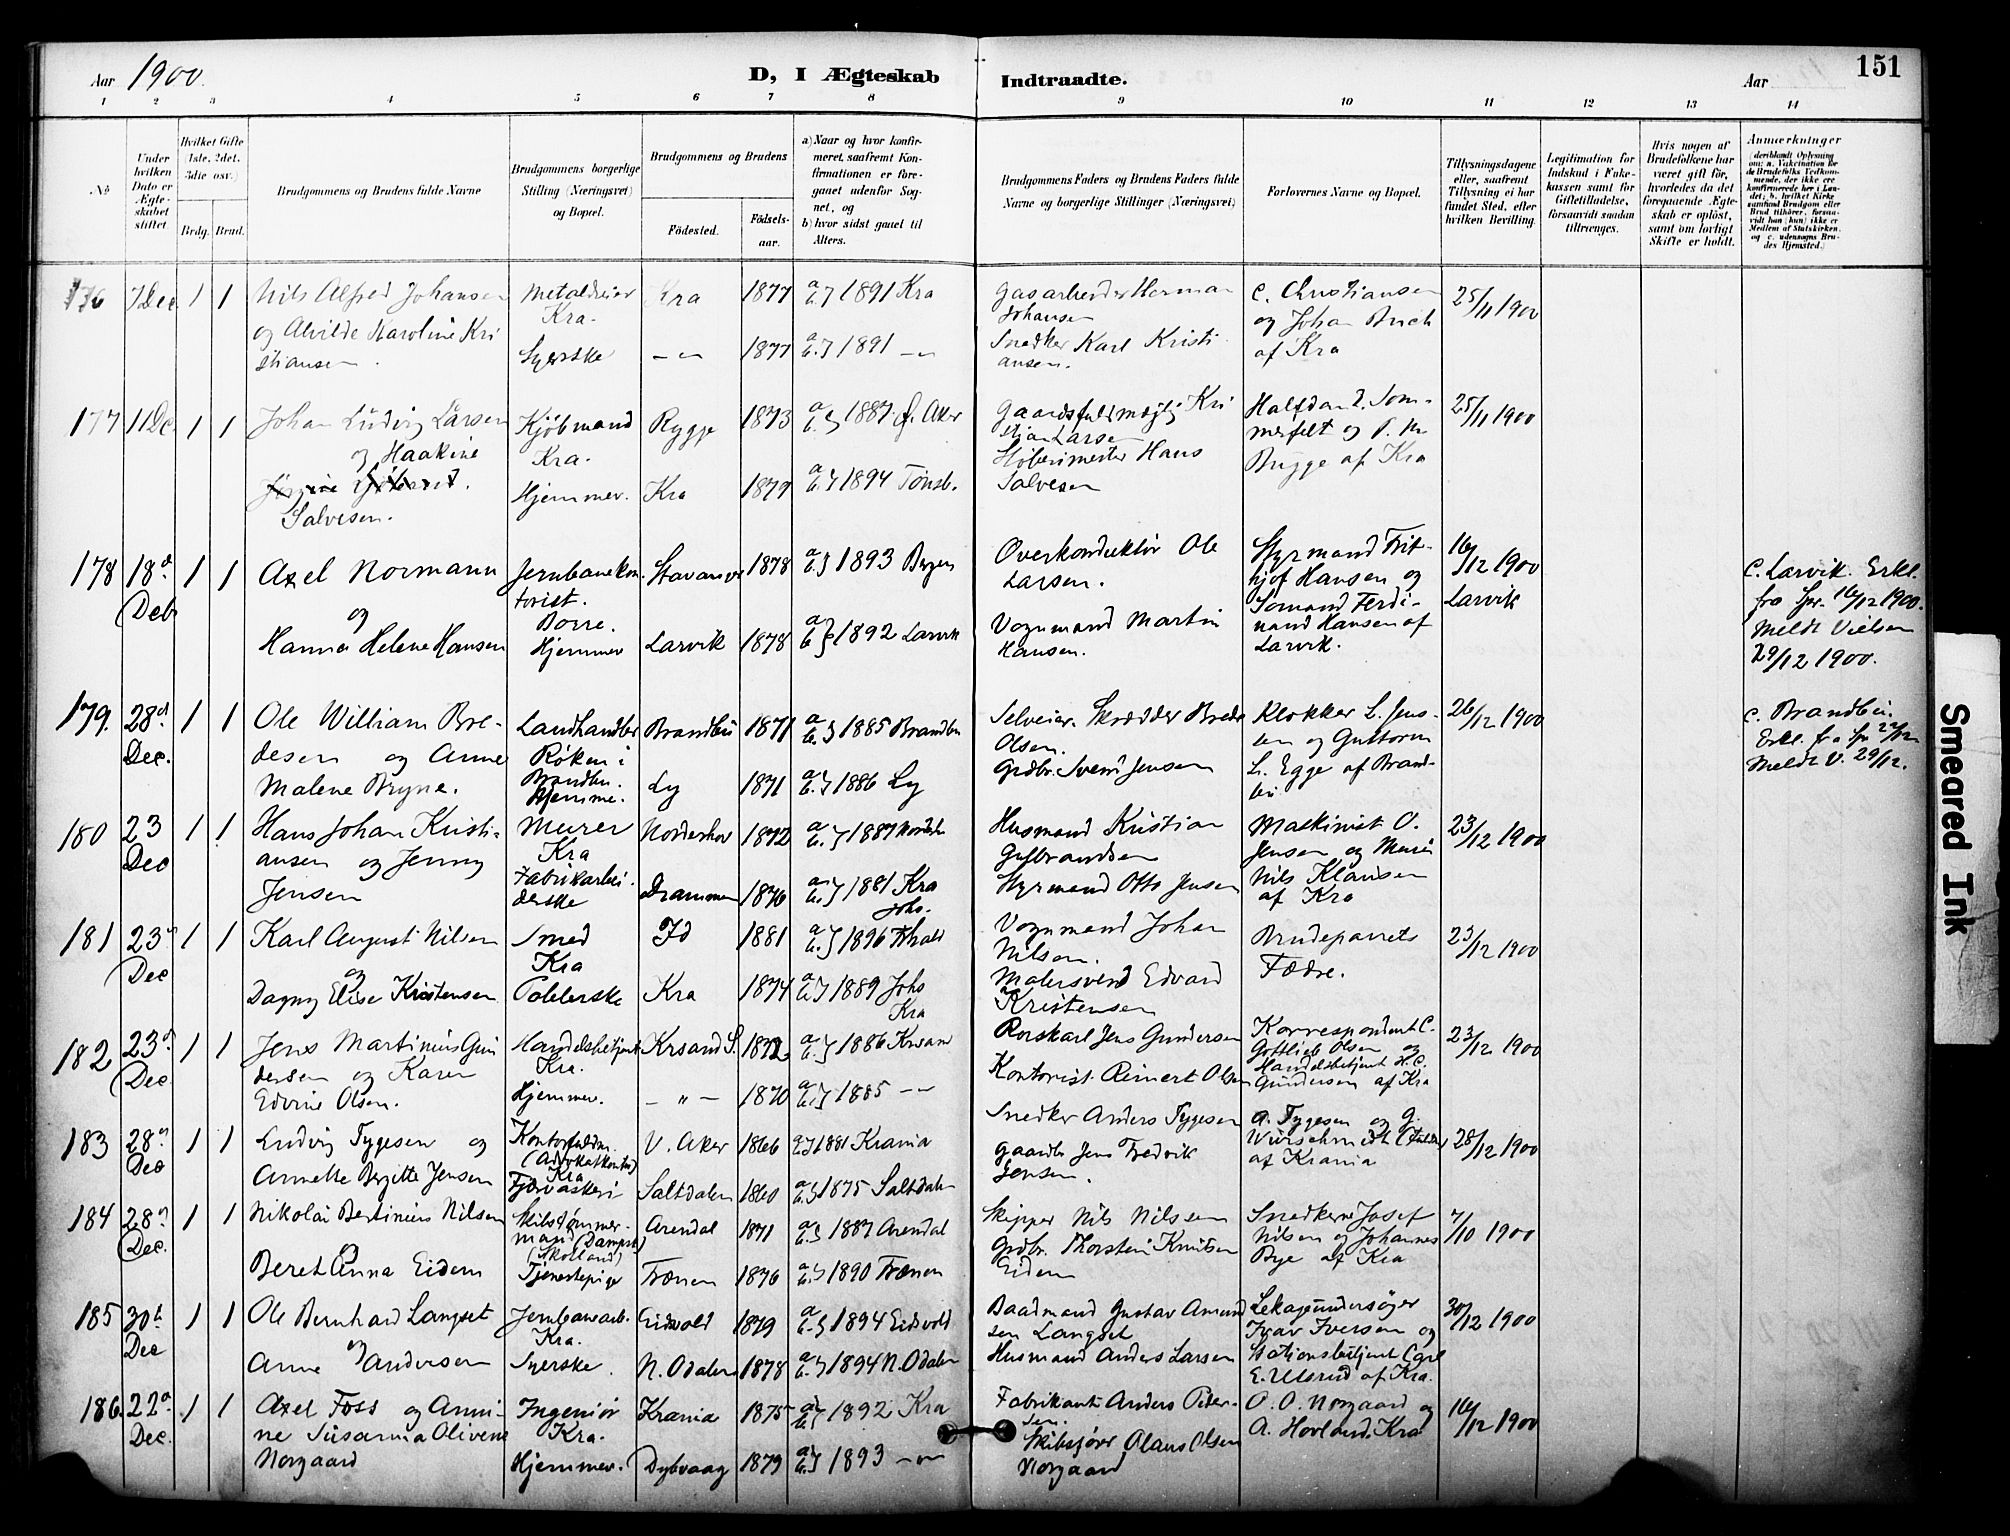 Aar 1900.
D, I Ægteskab Indtraadte.
Aar
151
1 2 3 4 5 6 7 8 9 10 11 12 13 14
No
Under hvilken Dato er Ægteskabet stiftet.
Hvilket Gifte (1ste, 2det, 3die osv.)
Brdg. Brud.
Brudgommens og Brudens fulde Navne
Brudgommens borgerlige Stilling (Næringsvei) og Bopæl.
Brudgommens og Brudens
Fødested.
Fødselsaar.
a) Naar og hvor konfirmeret, saafremt Konfirmationen er foregaaet udenfor Sognet, og
b) hvor sidst gaaet til Alters.
Brudgommens Faders og Brudens Faders fulde Navne og borgerlige Stillinger (Næringsvei)
Forlovernes Navne og Bopæl.
Tillysningsdagene eller, saafremt Tillysning ei har fundet Sted, efter hvilken Bevilling.
Legitimation for Indskud i Enkekassen samt for Giftetilladelse, forsaavidt saadan tiltrænges.
Hvis nogen af Brudefolkene har været gift før, hvorledes da det foregaaende Ægteskab er opløst, samt om lovligt Skifte er holdt.
Anmerkninger (deriblandt Oplysning om: a. Vakcination for de Brudefolks Vedkommende, der ikke ere konfirmerede her i Landet; b. hvilket Kirkesamfund Brudgom eller Brud tilhører, forsaavidt han (hun) ikke er Medlem af Statskirken, og c. udensogns Brudes Hjemsted.)
176 7 Dec 1 1 Nils Alfred Johansen
og Alvilde Karoline Kristiansen.
Metaldreier Kra.
Syerske
Kra 1877 a. b. } 1891 Kra
-"- 1877 a. b. } 1891 -"-
Gasarbeider Herman Johansen
Snedker Karl Kristiansen.
C. Christiansen og Johan Buch af Kra
25/11 1900
177 11 Dec. 1 1 Johan Ludvig Larsen
og Haakine
Salvesen.
Kjøbmand Kra.
Hjemmev.
Rygge 1873 a. b. } 1887 Aker
Kra 1879 a. b. } 1894 Tønsb.
Gaardsfuldmægtig Kristian Larsen
Støberimester Hans Salvesen
Halfdan Sommerfelt og Bugge af Kra
25/11 1900
178 18d Deb 1 1 Axel Normann
og
Hanna Helene Hansen
Jernbanekontorist. Borre.
Hjemmev
1878 a. b. } 1893 Bergen
Larvik 1878 a. b. } 1892 Larvik
Overkonduktør Ole Larsen.
Vognmand Martin Hansen.
Styrmand Fritjof Hansen og Sømand Ferdinand Hansen af Larvik.
16/12 1900 Larvik
c. Larvik. Erkl. fra Spr. 16/12 1900. Meldt Vielsen 29/12 1900.
179. 28d Dec. 1 1 Ole William Bredesen og Anne
Malene Bryne.
Landhandler Røken i Brandbu.
Hjemme.
Brandbu 1871 a. b. } 1885 Brandbu
Ly 1871 a. b. } 1886 Ly
Selveier. Skrædder Brede Olsen.
Grdbr. Svend Jensen
Klokker L. Jensen og Guttorm L. Egge af Brandbu
26/12 1900
c. Brandbu. Erkl. fra Spr 22/12 Meldt V. 29/12.
180 23 Dec 1 1 Hans Johan Kristiansen og Jenny
Jensen
Murer Kra
Fabrikarbeiderske
Norderhov 1872 a. b. } 1887 Norderh
Drammen 1876 a. b. } 1881 Kra Johs.
Husmand Kristian Gulbrandsen
Styrmand Otto Jensen
Maskinist O. Jensen og Murer Nils Klausen af Kra
23/12 1900
181 23d Dec 1 1 Karl August Nilsen
og
Dagny Elise Kristensen
Smed Kra
Polererske
Id 1881 a. b. } 1896 Frhald
Kra 1874 a. b. } 1889 Johs Kra
Vognmand Johan Nilsen.
Malersvend Edvard Kristensen
Brudeparrets Fædre.
23/12 1900
182 23d Dec 1 1 Jens Martinius Gundersen og Karen
Edvine Olsen.
Handelsbetjent Kra.
Hjemmev.
Krsand S. 1872 a. b. } 1886 Krsand
-"- 1870 a. b. } 1885 -"-
Rorskarl Jens Gundersen
Kontorist Reinert Olsen
Korrespondent C. Gottlieb Olsen og Handelsbetjent H. C. Gundersen af Kra
23/12 1900
183 28d Dec 1 1 Ludvig Tygesen og
Annette Bergitte Jensen
Kontorfuldm. (Advokatkontor) Kra
V. Aker 1866 a. b. } 1881 Krania
Saltdalen 1860 a. b. } 1875 Saltdalen
Snedker Anders Tygesen
Gaardbr Jens Fredrik Jensen.
A. Tygesen og G. Würschmidt af Krania
28/12 1900
184 28d Dec. 1 1 Nikolai Bertinius Nilsen
og
Beret Anna Eidem
Skibstømmermand (Dampsk) (Skotland)
Tjenestepige
Arendal 1871 a. b. } 1887 Arendal
Trænen 1876 a. b. } 1890 Trænen
Skipper Nils Nilssen
Grdbr. Thorstein Knutsen Eidem
Snedkerne Josef Nilsen og Johannes Bye af Kra
7/10 1900
185 30te Dec 1 1 Ole Bernhard Langset
og
Anne Andersen
Jernbanearb. Kra.
Syerske.
Eidsvold 1879 a. b. } 1894 Eidsvold
N. Odalen 1878 a. b. } 1894 N. Odalen
Baadmand Gustav Amundsen Langset
Husmand Anders Larsen
Lekageundersøger Ivar Iversen og Stationsbetjent Carl E. Ulsrud af Kra.
30/12 1900
186. 22d Dec. 1 1 Axel Foss og Annine Susanna Olivene
Norgaard
Ingeniør Kra.
Hjemmev.
Krania 1875 a. b. } 1892 Kra
Dybvaag 1879 a. b. } 1893 -"-
Fabrikant Anders Pedersen.
Skibsfører Olaus Olsen Norgaard
O. O. Norgaard og A. Hovland, Kra
16/12 1900
Smeared Ink